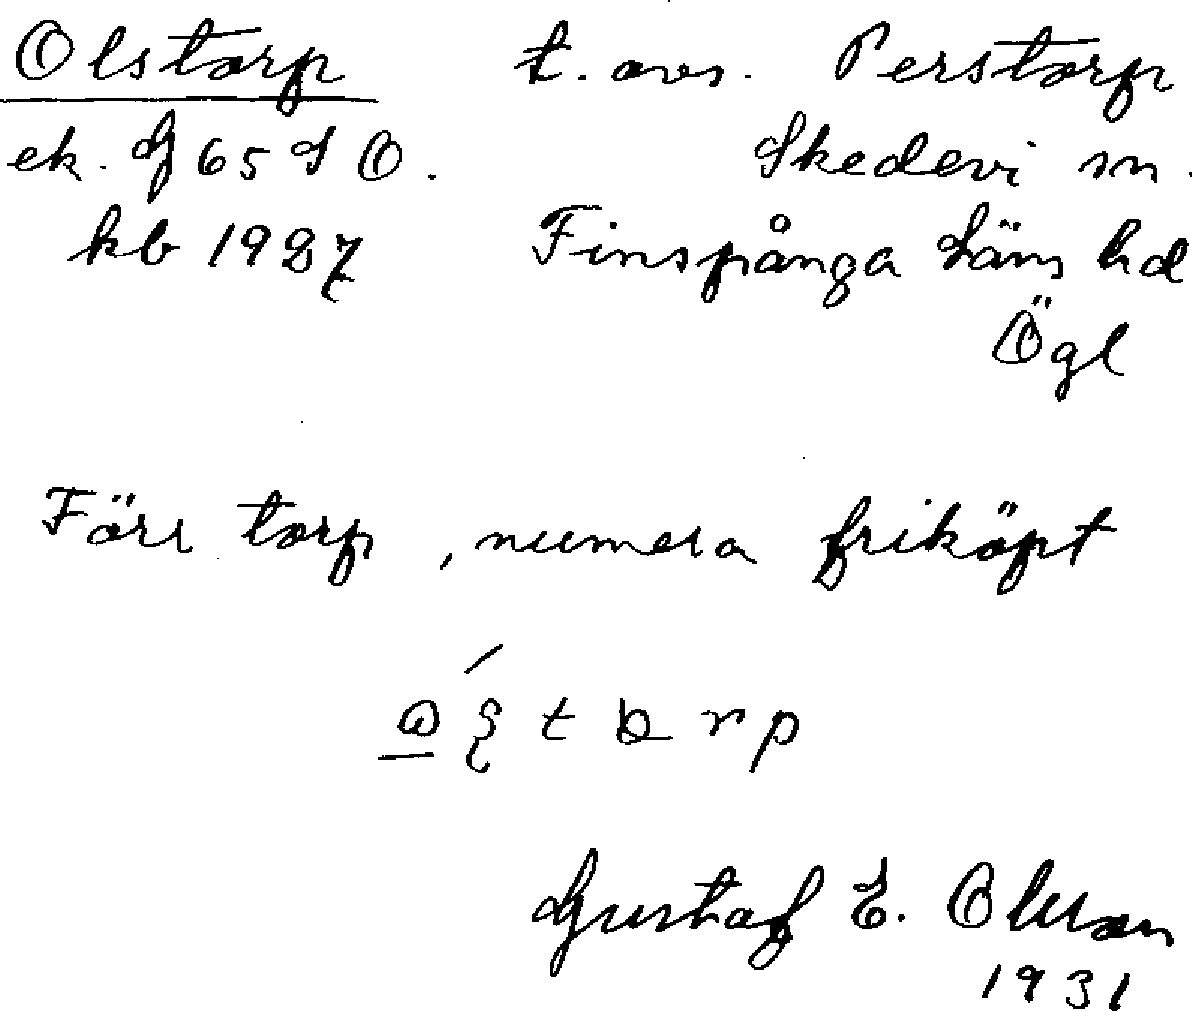 Olstorp t. avs. Perstorp
ek. G 65 SO. Skedevi sn.
kb 1927 Finspånga Läns hd
Ögl
Förr torp, numera friköpt
Gustaf E. Olsson
1931